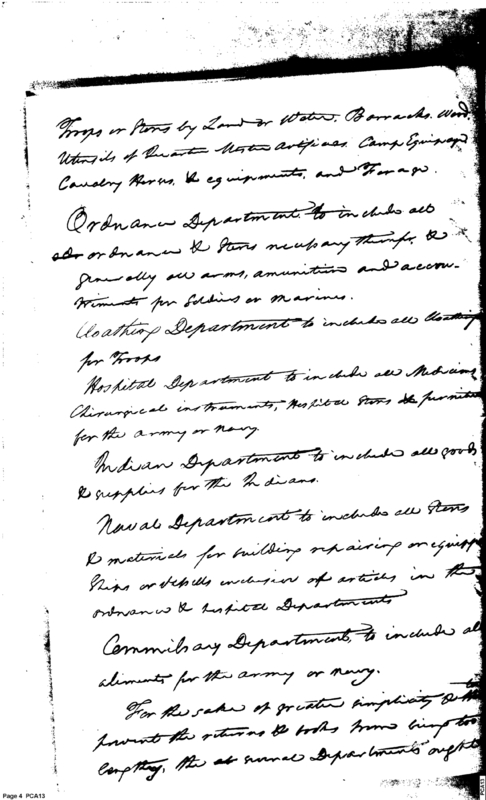 Troops or Stores by Land or Water. Barracks. Wood,
Utensils of Quarter Master Artificers. Camp Equipage
Cavalry Horses, & equipments, and Forage.
Ordnance Department to include all
ordnance & Stores necessary therefor, &
generally all arms, amunition and accou-
triments for Soldiers or Marines.
Cloathing Department to include all Cloathing
for Troops
Hospital Department to include all Medicines
Chirurgical instruments, Hospital Stores & furniture
for the army or navy.
Indian Department to include all goods
& supplies for the Indians.
Naval Department to include all Stores
& materials for building repairing or equipp
Ships or Vessells inclusive of articles in the
ordnance & hospital Departments
Commissary Department, to include all
aliments for the army or navy.
For the sake of greater simplicity & to
prevent the returns & books from being too
lengthy, the several Departments ought
Page 4 PCA13
PCA13